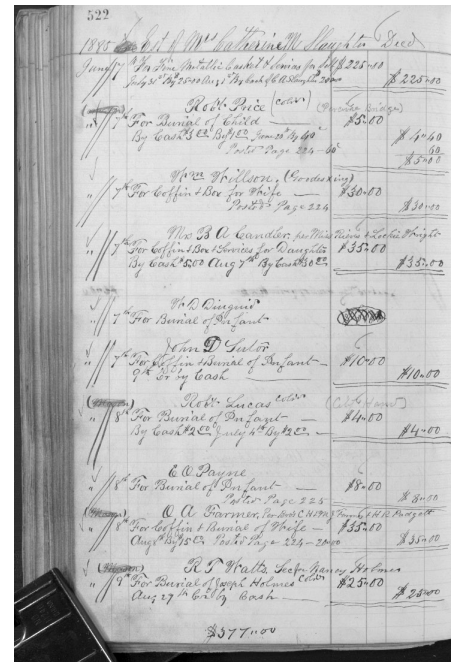 522
1885 Est of Mrs Catherine M Slaughter Died
June 7th For Fine Metallic Casket & Services for Self $225.00
July 31st By 25.00 Aug 1st By Cash of C A Slaughter 200.00 $225.00
Robt Price (Cold)
" 7th For Burial of Child $5.00
By Cash $3.00 By $1.00 June 23d By 40c $4.40
Posted Page 224 - 60c 60
$5.00
Wm Willson. (Goodes King)
" 7th For Coffin & Box for Wife — $30.00
Posted Page 224 $30.00
Mrs B A Candler. per Miss & Lockie Wright
" 7th For Coffin & Box & Services for Daughter $35.00
By Cash $5.00 Aug 7th By Cash $30.00 $35.00
W D Diuguid
" 7th For Burial of Infant
John D Sutor
" 7th For Coffin & Burial of Infant — $10.00
9th Cr by Cash $10.00
Robt Lucas Cold
" 8th For Burial of Infant — $4.00
By Cash $2.00 July 4th By $2.00 — $4.00
E O Payne
" 8th For Burial of Infant — $8.00
Posted Page 225 $8.00
O A Farmer, & H R Padgett
" 8th For Coffin & Burial of Wife — $35.00
Aug 8th By 15 Cr. Posted Page 224 — 20.00 $35.00
R T Watts, Sec for Nancy Holmes
" 9th For Burial of Joseph Holmes Cold $25.00
Aug 27th Cr by Cash — $25.00
$377.00